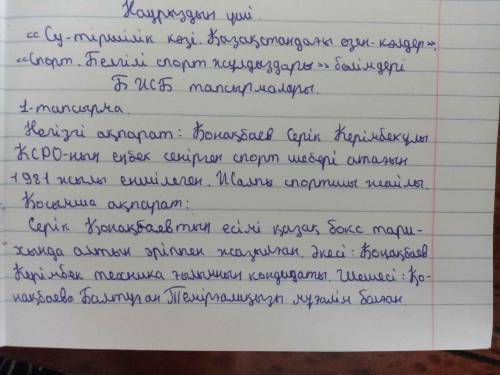 Наурыздың үші.
«Су-тіршілік көзі. Қазақстандағы өзен-көлдер».
«Спорт. Белгілі спорт жұлдыздары» бөлімдері
Б ЖБ тапсырмалары.
1-тапсырма.
Негізгі ақпарат: Қонақбаев Серік Керімбекұлы
КСРО-ның еңбек сенірген спорт шебері атағын
1981 жылы еншілеген. Жалпы спортшы жайлы.
Қосымша ақпарат:
Серік Қонақбаевтың есімі қазақ бокс тари-
хында алтын әріппен жазылған. Әкесі: Қонақбаев
Керімбек техника ғылымның кондидаты. Шешесі: Қо-
нақбаева Балтуған Темірғалиқызы мұғалін болған